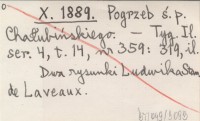 X. 1889. Pogrzeb ś. p.
Chałubińskiego. — Tyg. Il.
ser. 4, t. 14, nr 359: 319, il.
Dwa rysunki Ludwika
de Laveaux.